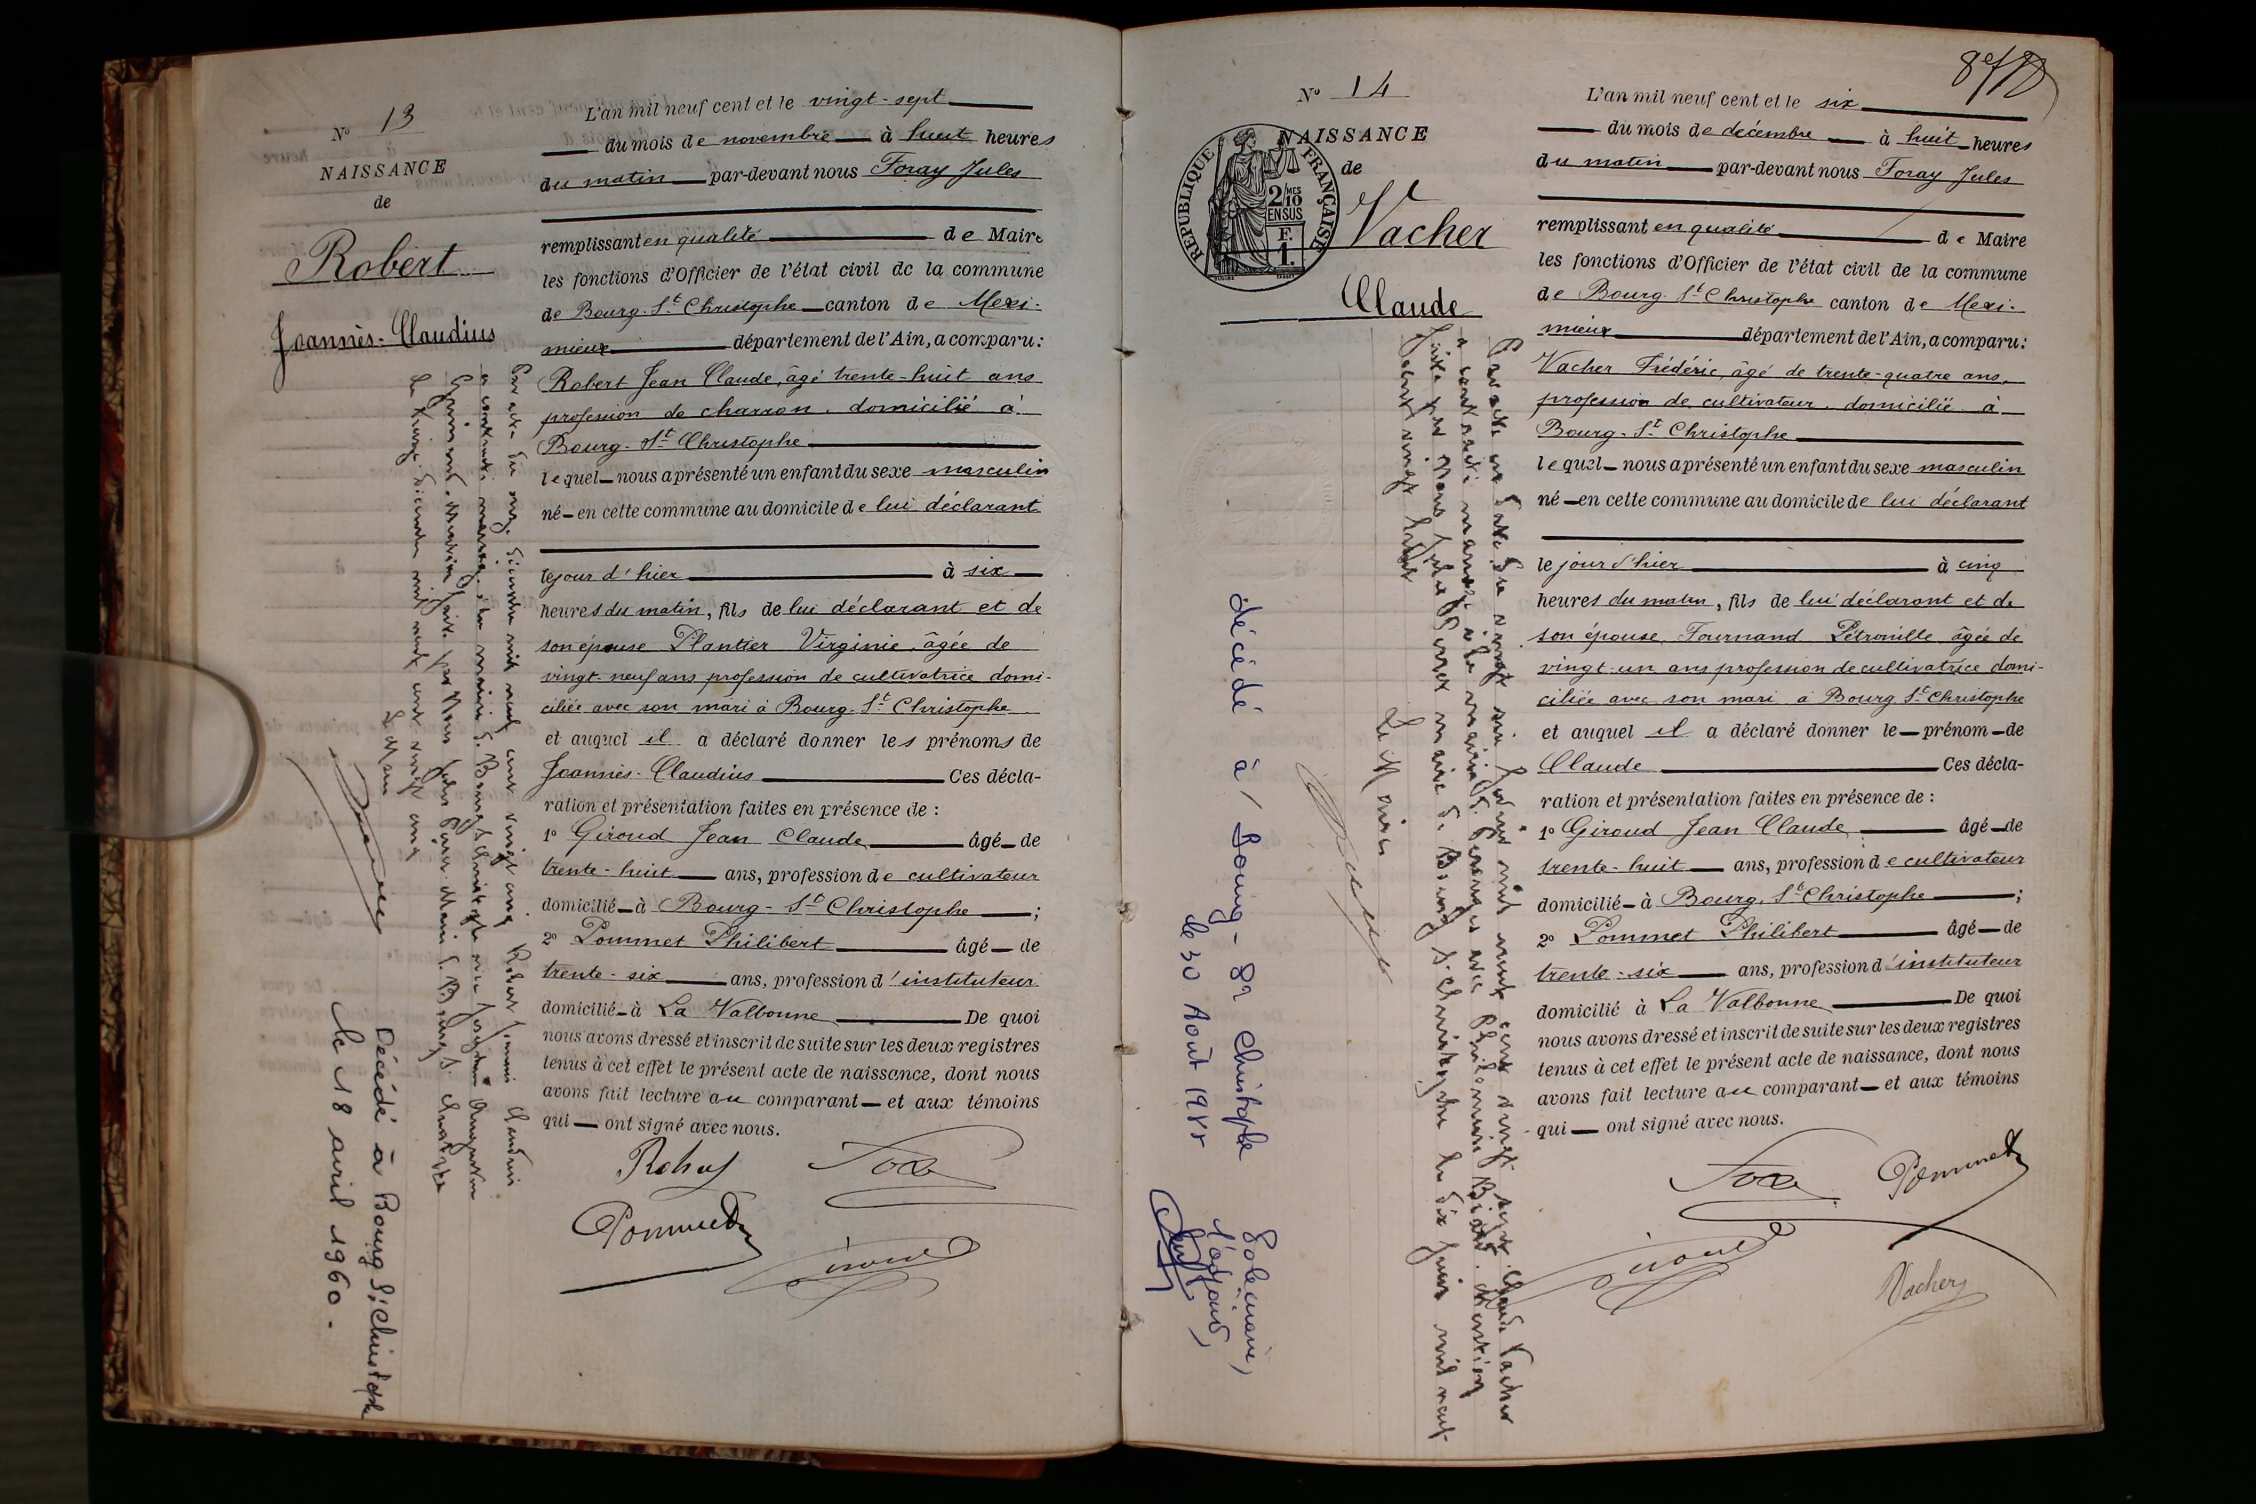 N° 13
NAISSANCE
de
Robert
Joannès-Claudius
L'an mil neuf cent et le vingt-sept
du mois de novembre à huit heures
du matin par-devant nous Foray Jules
remplissant en qualité de Maire
les fonctions d'Officier de l'état civil de la commune
de Bourg-St Christophe canton de Mexi-
mieux département de l'Ain, a comparu:
Robert Jean Claude, âgé trente-huit ans
profession de charron, domicilié à
Bourg-St Christophe
lequel nous a présenté un enfant du sexe masculin
né en cette commune au domicile de lui déclarant
le jour d'hier à six
heures du matin, fils de lui déclarant et de
son épouse Plantier Virginie, âgée de
vingt-neuf ans profession de cultivatrice domi-
ciliée avec son mari à Bourg-St Christophe
et auquel il a déclaré donner les prénoms de
Joannès-Claudius Ces décla-
ration et présentation faites en présence de :
1° Giroud Jean Claude âgé de
trente-huit ans, profession de cultivateur
domicilié à Bourg-St Christophe ;
2° Pommet Philibert âgé de
trente-six ans, profession d'instituteur
domicilié à La Valbonne De quoi
nous avons dressé et inscrit de suite sur les deux registres
tenus à cet effet le présent acte de naissance, dont nous
avons fait lecture au comparant et aux témoins
qui ont signé avec nous.
Pommet
Par acte du onze décembre mil neuf cent vingt cinq Robert
a contracté mariage à la mairie de Bourg St Christophe avec
mention faite par Nous Maire de Bourg St Christophe
le décembre mil neuf cent vingt cinq
Le Maire
Décédé à Bourg St Christophe
le 18 avril 1960.
N° 14
NAISSANCE
de
Vacher
Claude
REPUBLIQUE FRANÇAISE
2/10 MES
EN SUS
F.
1.
L'an mil neuf cent et le six
du mois de décembre à huit heures
du matin par-devant nous Foray Jules
remplissant en qualité de Maire
les fonctions d'Officier de l'état civil de la commune
de Bourg-St Christophe canton de Mexi-
mieux département de l'Ain, a comparu:
Vacher Frédéric, âgé de trente-quatre ans,
profession de cultivateur, domicilié à
Bourg-St Christophe
lequel nous a présenté un enfant du sexe masculin
né en cette commune au domicile de lui déclarant
le jour d'hier à cinq
heures du matin, fils de lui déclarant et de
son épouse Tournand Pétronille âgée de
vingt-un ans profession de cultivatrice domi-
ciliée avec son mari à Bourg St Christophe
et auquel il a déclaré donner le prénom de
Claude Ces décla-
ration et présentation faites en présence de :
1° Giroud Jean Claude âgé de
trente-huit ans, profession de cultivateur
domicilié à Bourg-St Christophe ;
2° Pommet Philibert âgé de
trente-six ans, profession d'instituteur
domicilié à La Valbonne De quoi
nous avons dressé et inscrit de suite sur les deux registres
tenus à cet effet le présent acte de naissance, dont nous
avons fait lecture au comparant et aux témoins
qui ont signé avec nous.
Pommet
Vacher
Par acte en date du vingt six mil neuf cent vingt Claude Vacher
a contracté mariage à la mairie de Pérouges avec Philomène mention
faite par Nous maire de Bourg St Christophe le dix juin mil neuf
cent vingt huit
Le Maire
décédé à Bourg-St Christophe
le 30 Août
Le maire,